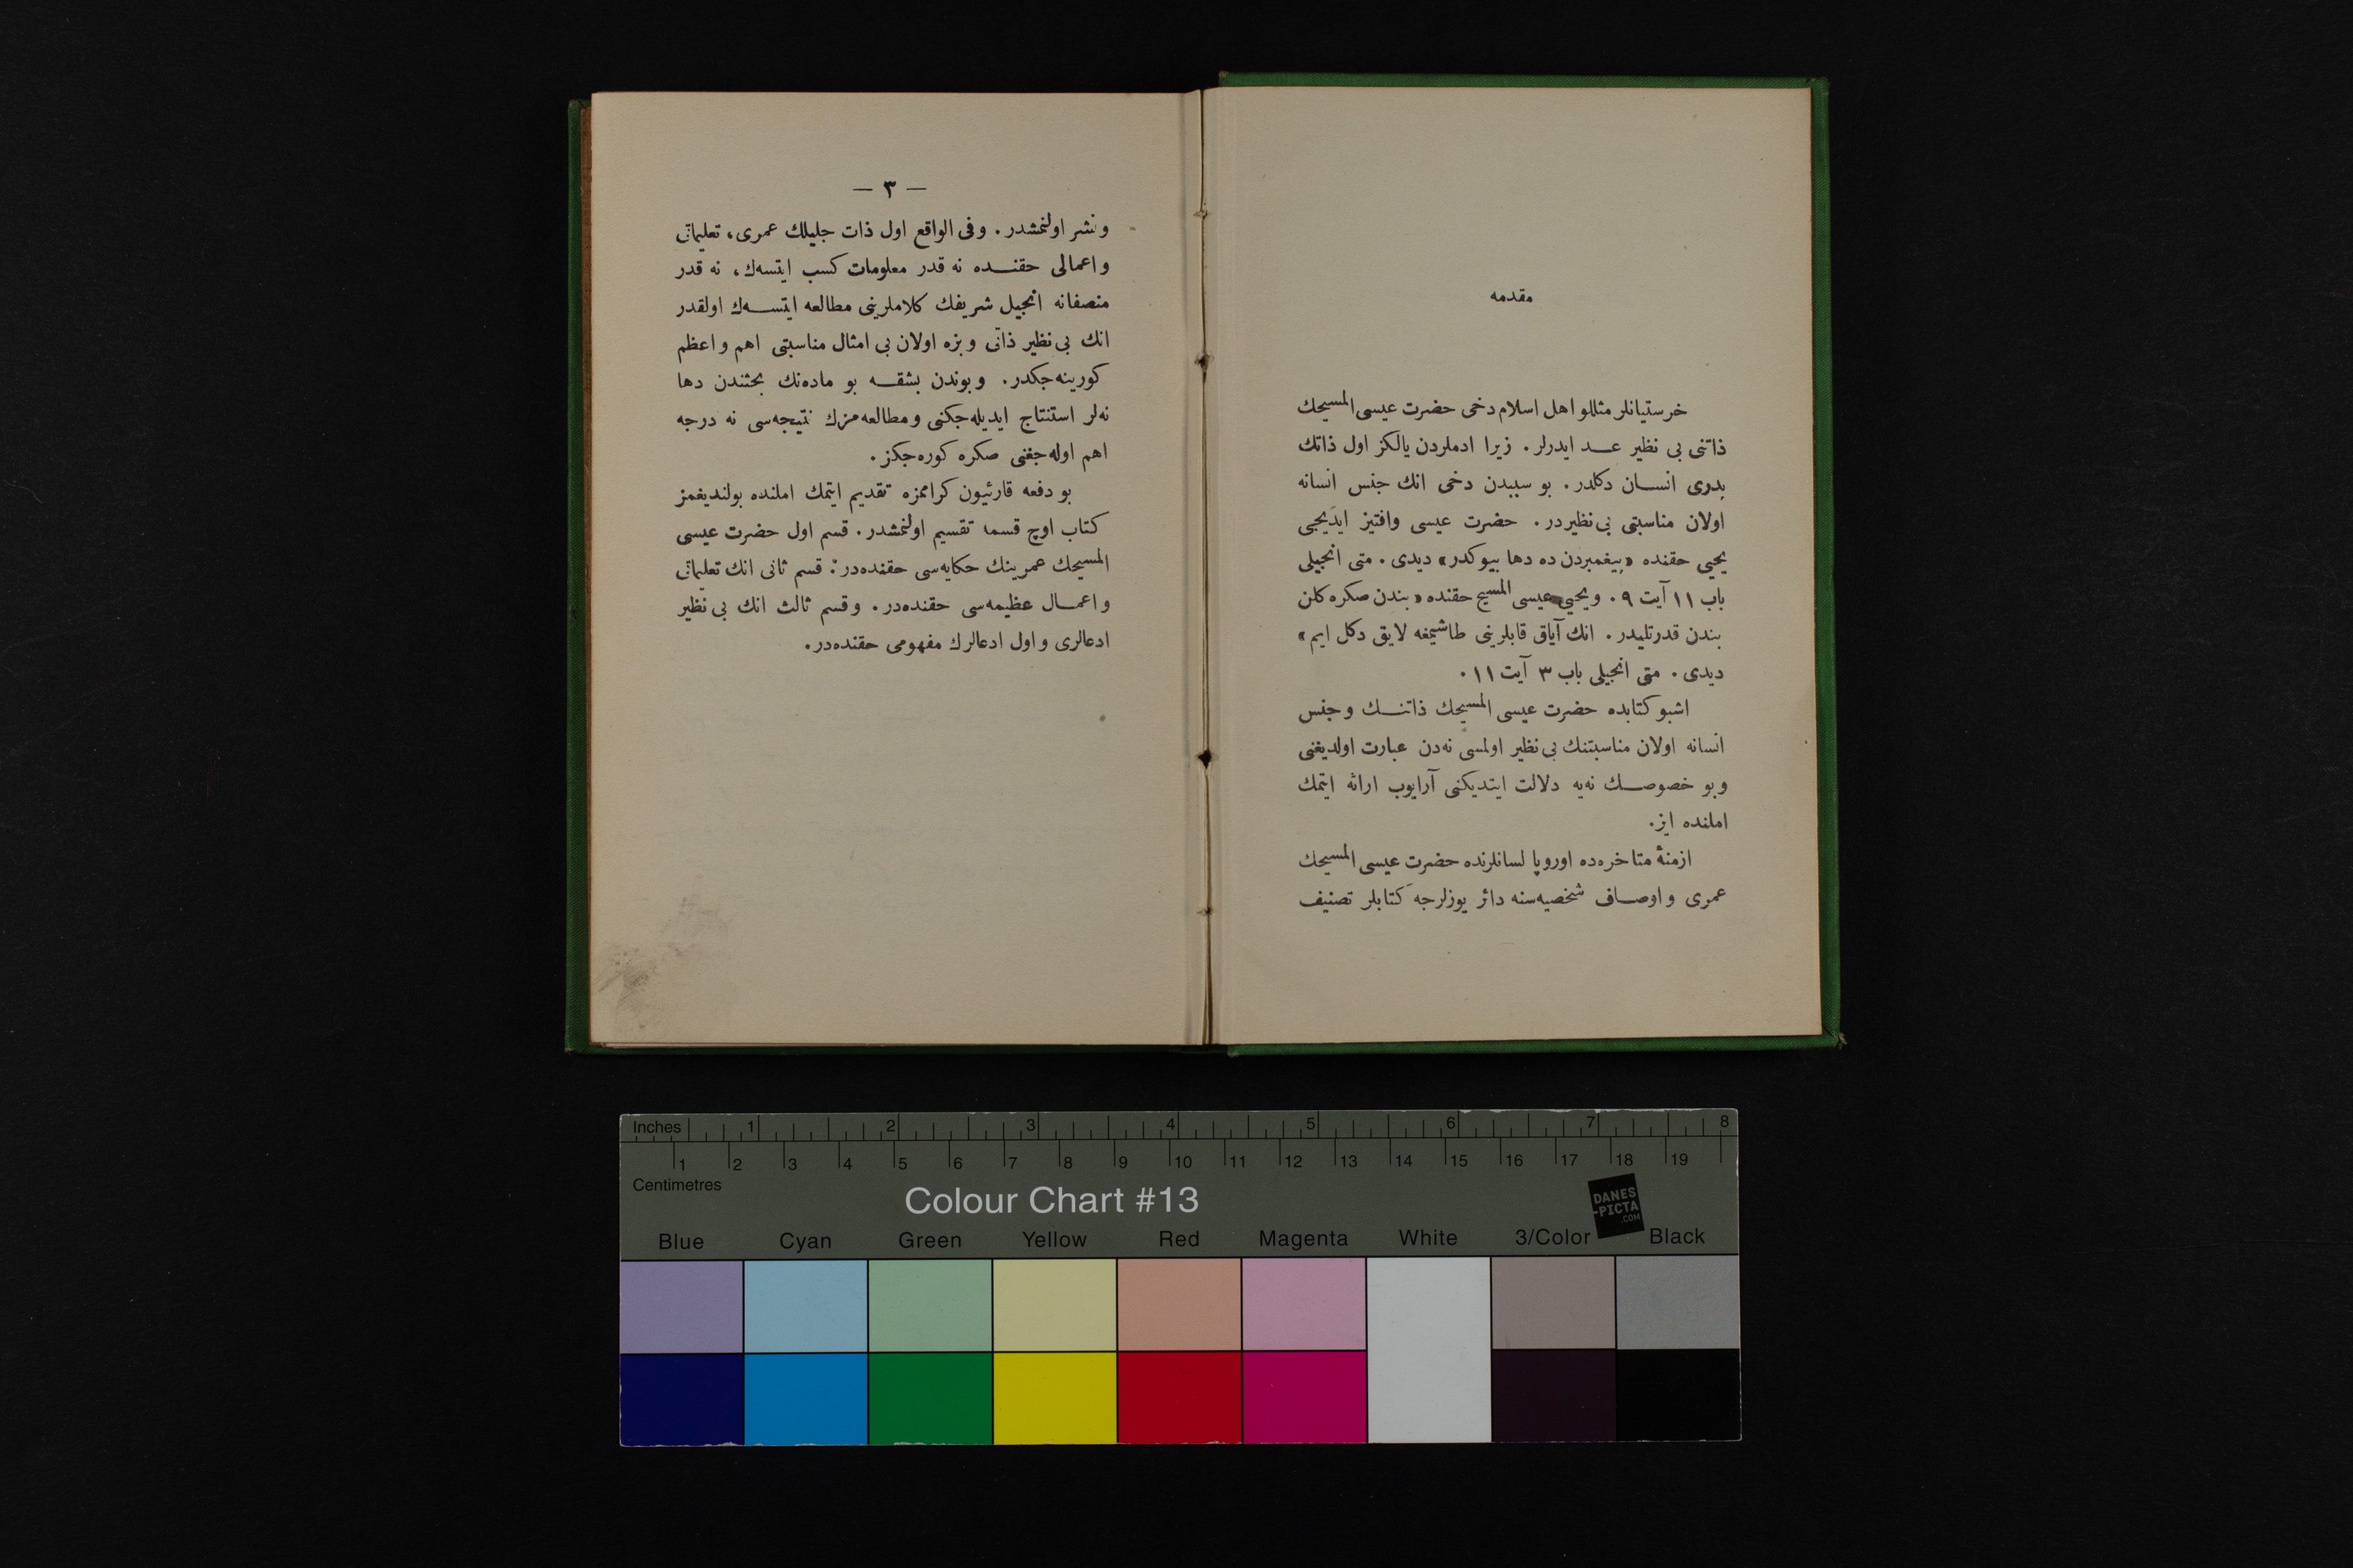 مقدمه
خرستیانلر مثللو اهل اسلام دخی حضرت عیسی المسیحك
ذاتنی بی نظیر عـد ایدرلر. زیرا ادملردن یالکز اول ذاتك
پدری انسـان دکلدر. بو سببدن دخی انك جنس انسانه
اولان مناسبتی بی‌نظیردر. حضرت عیسی وافتیز ایدیجی
یحیی حقنده «پیغمبردن ده دها بیوکدر» دیدی. متی انجیلی
باب ١١ آیت ٩. ویحیی عیسی المسیح حقنده «بندن صکره کلن
بندن قدرتلیدر. انك آیاق قابلرینی طاشیمغه لایق دکل ایم»
دیدی. متی انجیلی باب ٣ آیت ١١.
اشبو کتابده حضرت عیسی المسیحك ذاتنـك وجنس
انسانه اولان مناسبتنك بی‌نظیر اولمسی نه‌دن عبارت اولدیغنی
وبو خصوصـك نه‌یه دلالت ایتدیکنی آرایوب ارائه ایتمك
املنده ایز.
ازمنۀ متاخره‌ده اوروپا لسانلرنده حضرت عیسی المسیحك
عمری واوصـاف شخصیه‌سنه دائر یوزلرجه کتابلر تصنیف
— ٣ —
ونشر اولنمشدر. وفی الواقع اول ذات جلیلك عمری، تعلیماتی
واعمالی حقنـده نه قدر معلومات کسب ایتسه‌ك، نه قدر
منصفانه انجیل شریفك کلاملرینی مطالعه ایتسـه‌ك اولقدر
انك بی‌نظیر ذاتی وبزه اولان بی امثال مناسبتی اهم واعظم
کورینه‌جکدر. وبوندن بشقـه بو ماده‌نك بحثندن دها
نه‌لر استنتاج ایدیله‌جکنی ومطالعه‌مزك نتیجه‌سی نه درجه
اهم اوله‌جغنی صکره کوره‌جکز.
بو دفعه قارئیون کراممزه تقدیم ایتمك املنده بولندیغمز
کتاب اوچ قسمه تقسیم اولنمشدر. قسم اول حضرت عیسی
المسیحك عمرینك حکایه‌سی حقنده‌در: قسم ثانی انك تعلیماتی
واعمـال عظیمه‌سی حقنده‌در. وقسم ثالث انك بی‌نظیر
ادعالری واول ادعالرك مفهومی حقنده‌در.
Inches 1 2 3 4 5 6 7 8
1 2 3 4 5 6 7 8 9 10 11 12 13 14 15 16 17 18 19
Centimetres
Colour Chart #13
DANES
-PICTA
.COM
Blue Cyan Green Yellow Red Magenta White 3/Color Black